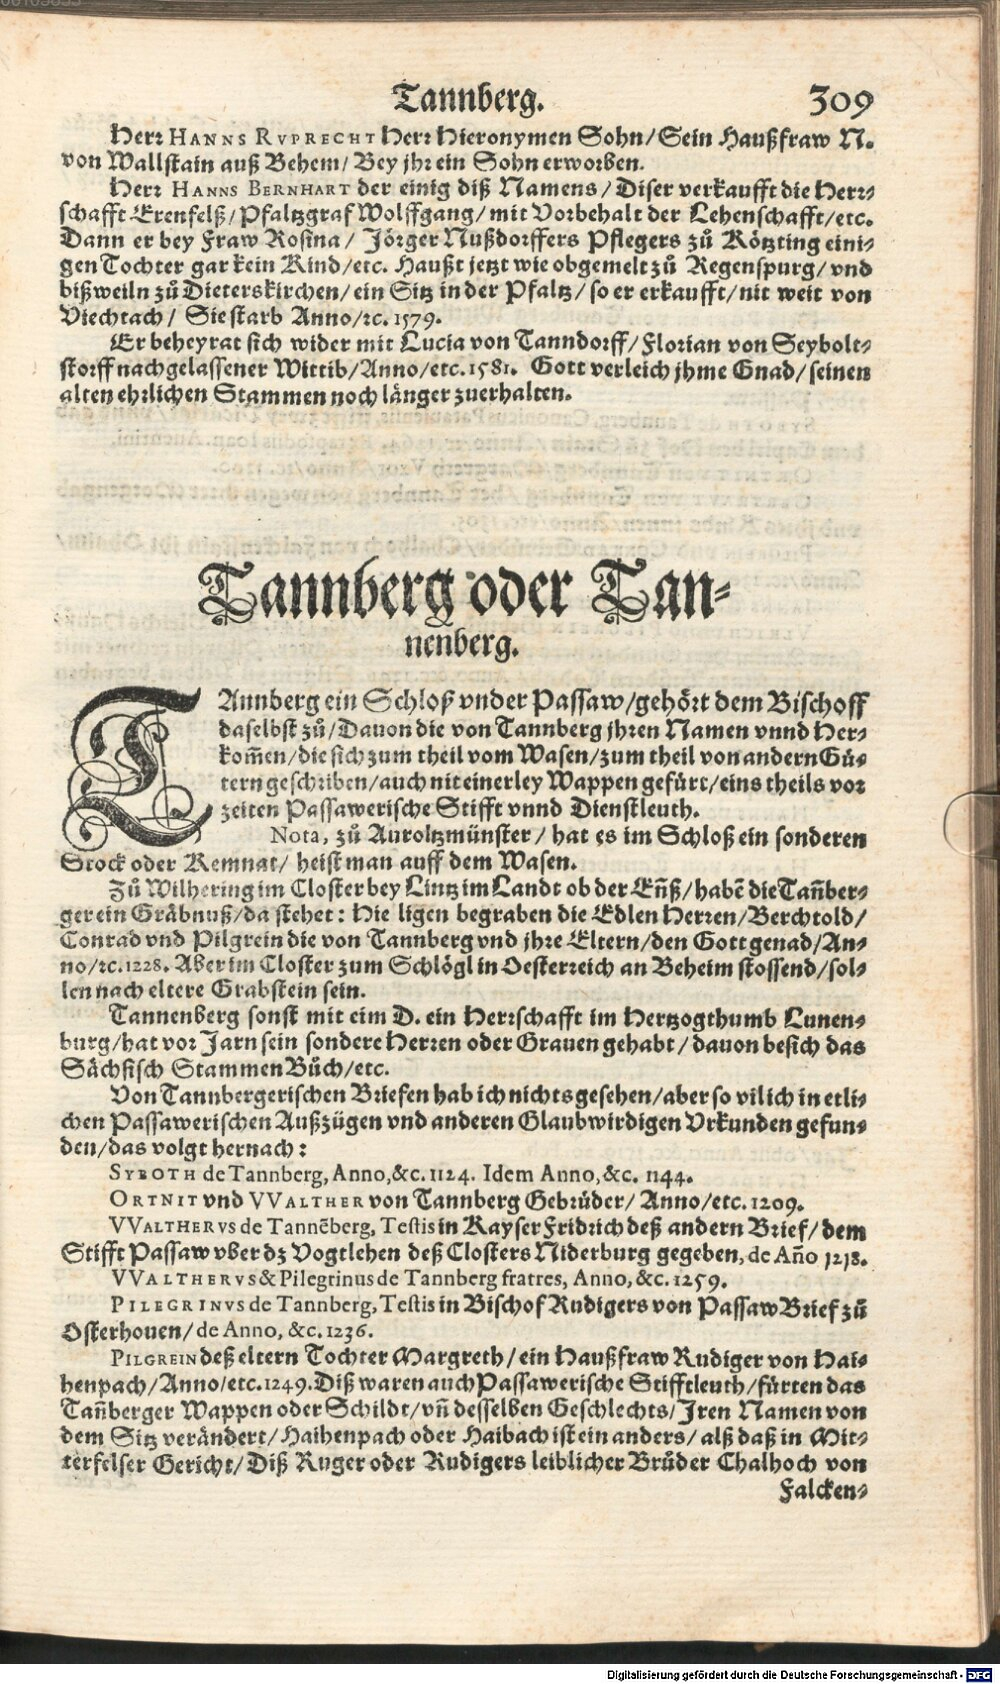 Tannberg. 309
Herr HANNS RVPRECHT Herr Hieronymen Sohn/Sein Haußfraw N.
von Wallstain auß Behem/Bey jhr ein Sohn erworben.
Herr HANNS BERNHART der einig diß Namens/Diser verkaufft die Herr⸗
schafft Erenfelß/Pfaltzgraf Wolffgang/mit Vorbehalt der Lehenschafft/etc.
Dann er bey Fraw Rosina/ Jörger Nußdorffers Pflegers zů Kötzting eini⸗
gen Tochter gar kein Kind/etc. Haußt jetzt wie obgemelt zů Regenspurg/vnd
bißweiln zů Dieterskirchen/ein Sitz in der Pfaltz/so er erkaufft/nit weit von
Viechtach/ Sie starb Anno/ꝛc.1579.
Er beheyrat sich wider mit Lucia von Tanndorff/Florian von Seybolt⸗
storff nachgelassener Wittib/Anno/etc.1581. Gott verleich jhme Gnad/seinen
alten ehrlichen Stammen noch länger zuerhalten.
Tannberg oder Tan⸗
nenberg.
TAnnberg ein Schloß vnder Passaw/gehört dem Bischoff
daselbst zů/Dauon die von Tannberg jhren Namen vnnd Her⸗
kom̃en/die sich zum theil vom Wasen/zum theil von andern Gü⸗
tern geschriben/auch nit einerley Wappen gefürt/eins theils vor
zeiten Passawerische Stifft vnnd Dienstleuth.
Nota, zů Auroltzmünster/ hat es im Schloß ein sonderen
Stock oder Kemnat/ heist man auff dem Wasen.
Zů Wilhering im Closter bey Lintz im Landt ob der Eñß/habẽ die Tañber⸗
ger ein Gräbnuß/da stehet: Hie ligen begraben die Edlen Herren/Berchtold/
Conrad vnd Pilgrein die von Tannberg vnd jhre Eltern/den Gott genad/An⸗
no/ꝛc.1228. Aber im Closter zum Schlögl in Oesterreich an Beheim stossend/sol⸗
len nach eltere Grabstein sein.
Tannenberg sonst mit eim D. ein Herrschafft im Hertzogthumb Lunen⸗
burg/hat vor Jarn sein sondere Herren oder Grauen gehabt/dauon besich das
Sächsisch Stammen Bůch/etc.
Von Tannbergerischen Briefen hab ich nichts gesehen/aber so vil ich in etli⸗
chen Passawerischen Außzügen vnd anderen Glaubwirdigen Vrkunden gefun⸗
den/das volgt hernach:
SYBOTH de Tannberg, Anno,&c. 1124. Idem Anno,&c. 1144.
ORTNIT vnd VVALTHER von Tannberg Gebrüder/ Anno/etc.1209.
VVALTHERVS de Tannẽberg, Testis in Kayser Fridrich deß andern Brief/dem
Stifft Passaw vber dz Vogtlehen deß Closters Niderburg gegeben, de Año 1218.
VVALTHERVS & Pilegrinus de Tannberg fratres, Anno, &c. 1259.
PILEGRINVS de Tannberg, Testis in Bischof Rudigers von Passaw Brief zů
Osterhouen/de Anno, &c. 1236.
PILGREIN deß eltern Tochter Margreth/ein Haußfraw Rudiger von Hai⸗
henpach/Anno/etc.1249. Diß waren auch Passawerische Stifftleuth/fürten das
Tañberger Wappen oder Schildt/vñ desselben Geschlechts/Jren Namen von
dem Sitz verändert/Haihenpach oder Haibach ist ein anders/alß daß in Mit⸗
terfelser Gericht/Diß Ruger oder Rudigers leiblicher Brůder Chalhoch von
Falcken⸗
Digitalisierung gefördert durch die Deutsche Forschungsgemeinschaft - DFG